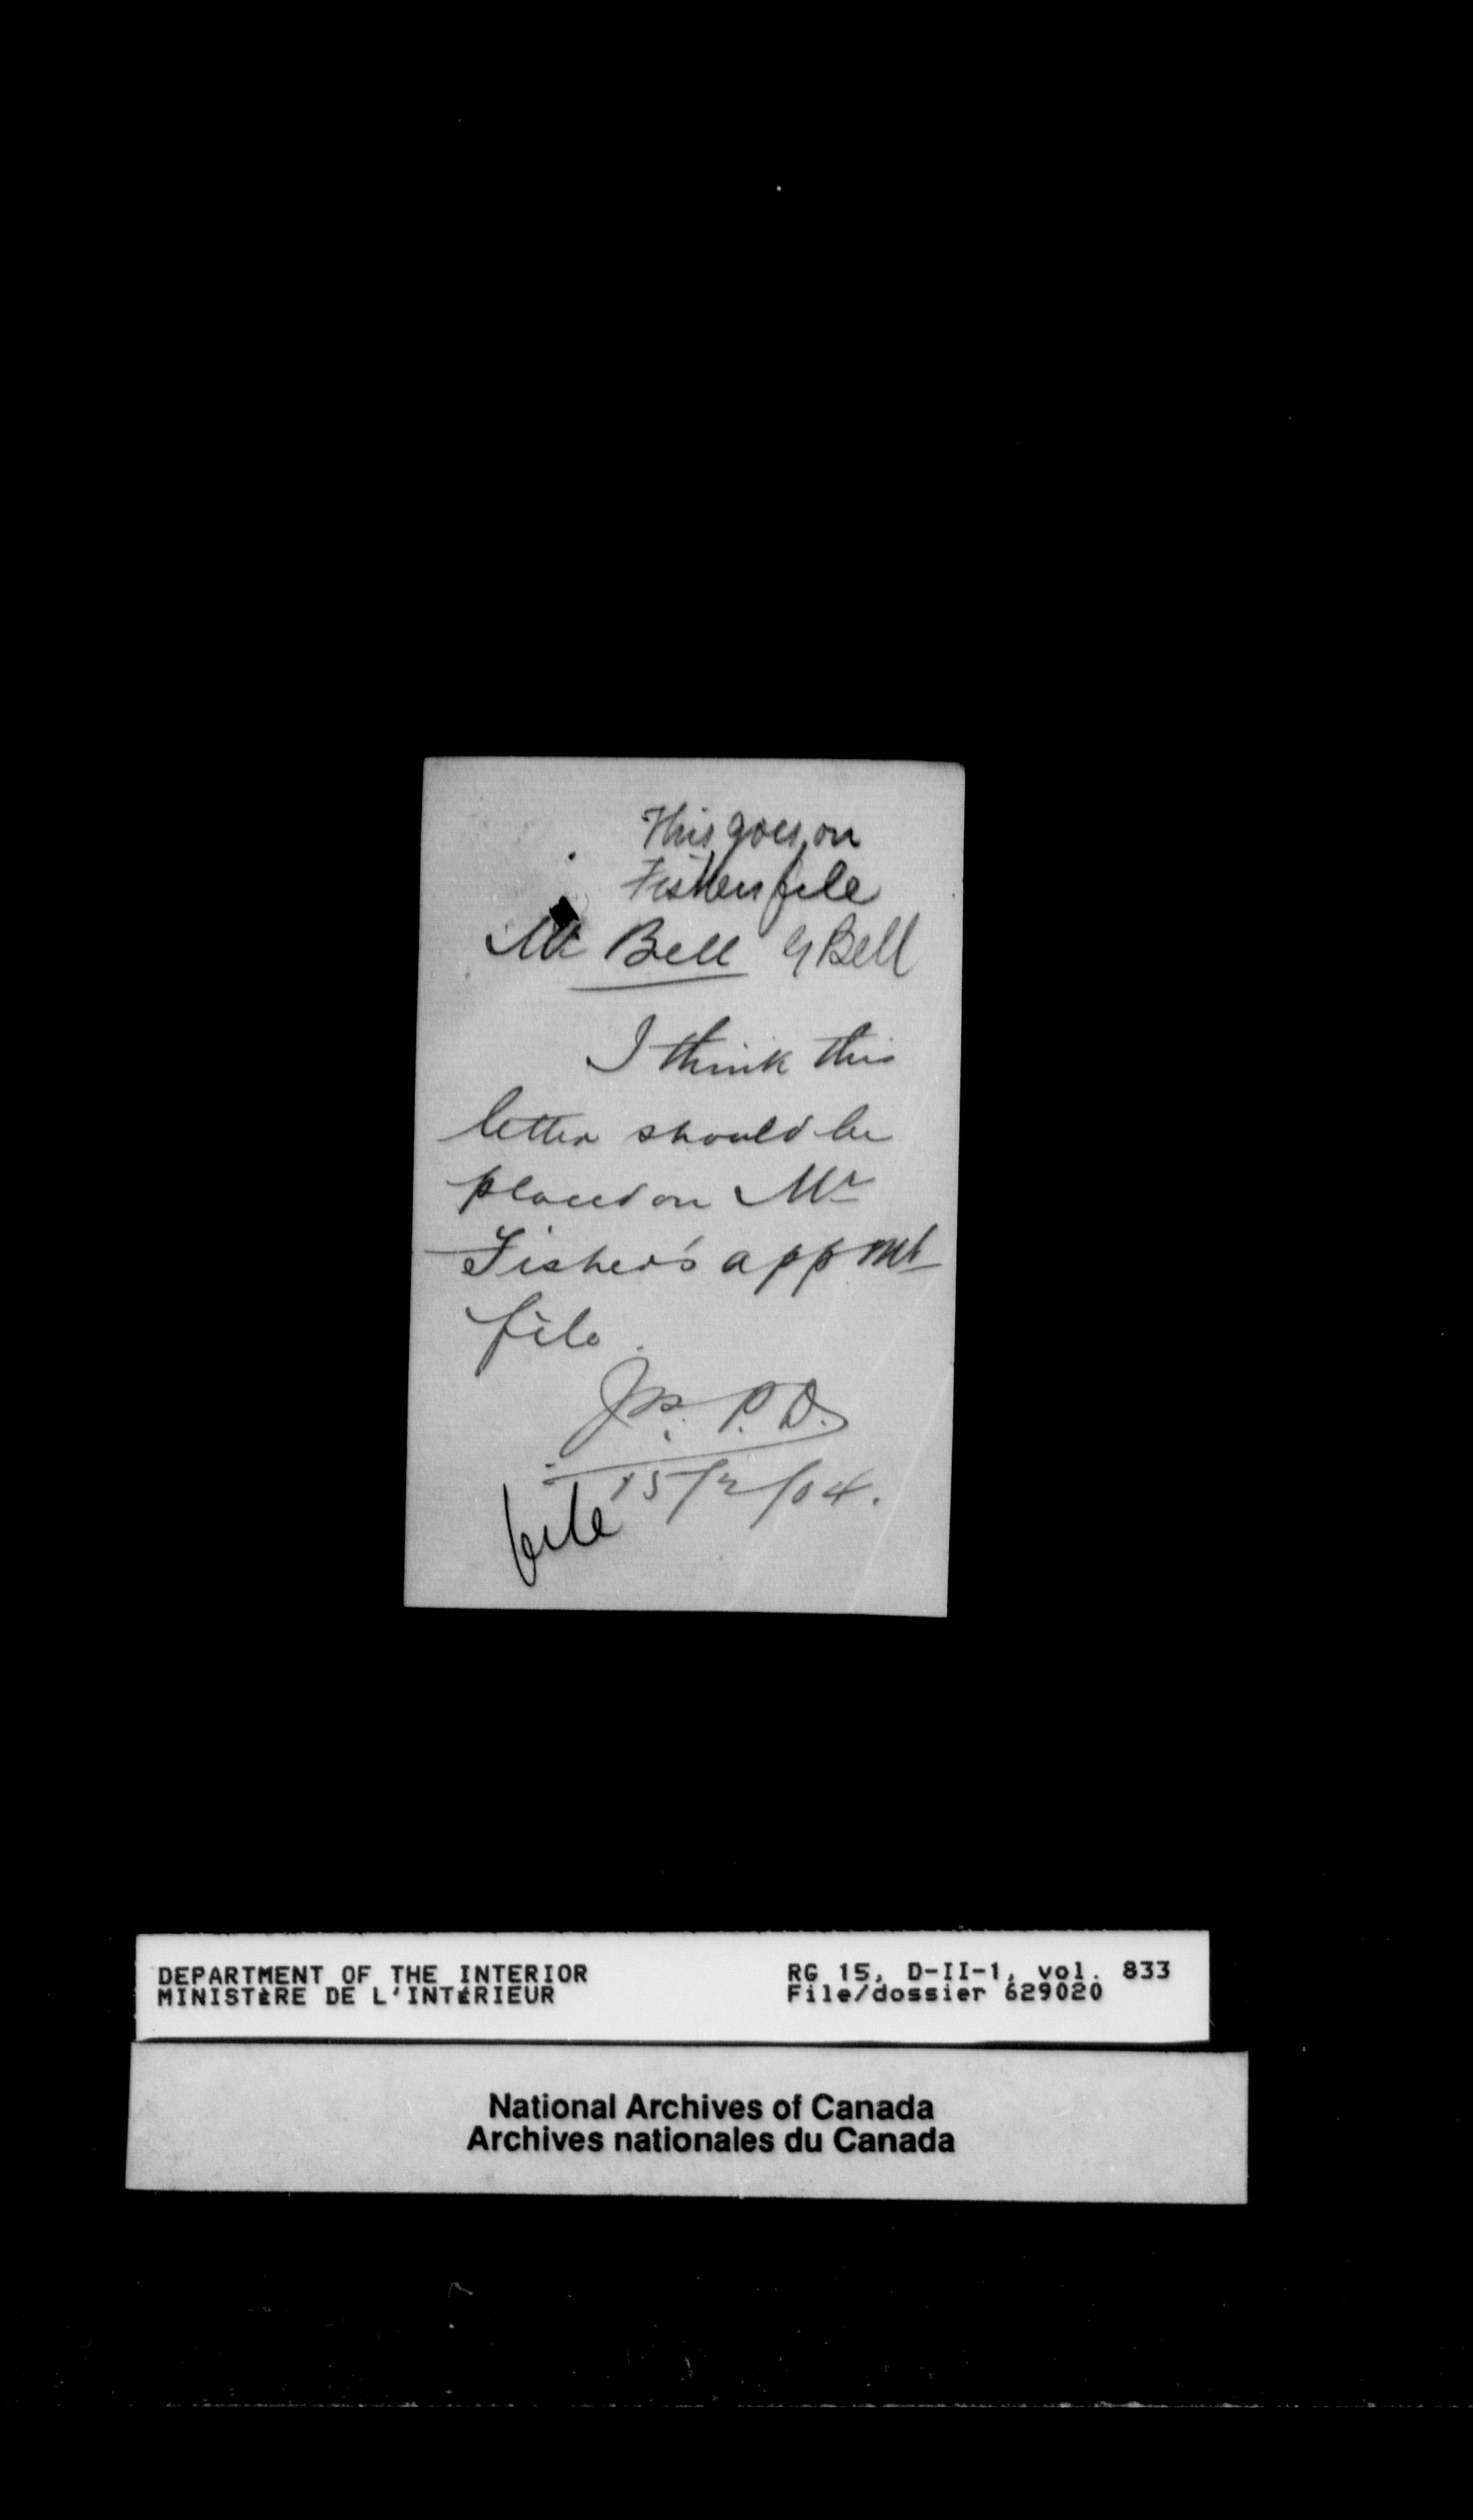 This goes on
Fishers file
Mr Bell G Bell
I think this
letter should be
placed on Mr
Fisher's appmt
file.
P. D.
15/2/04.
file
DEPARTMENT OF THE INTERIOR RG 15, D-II-1, vol. 833
MINISTÈRE DE L'INTÉRIEUR File/dossier 629020
National Archives of Canada
Archives nationales du Canada